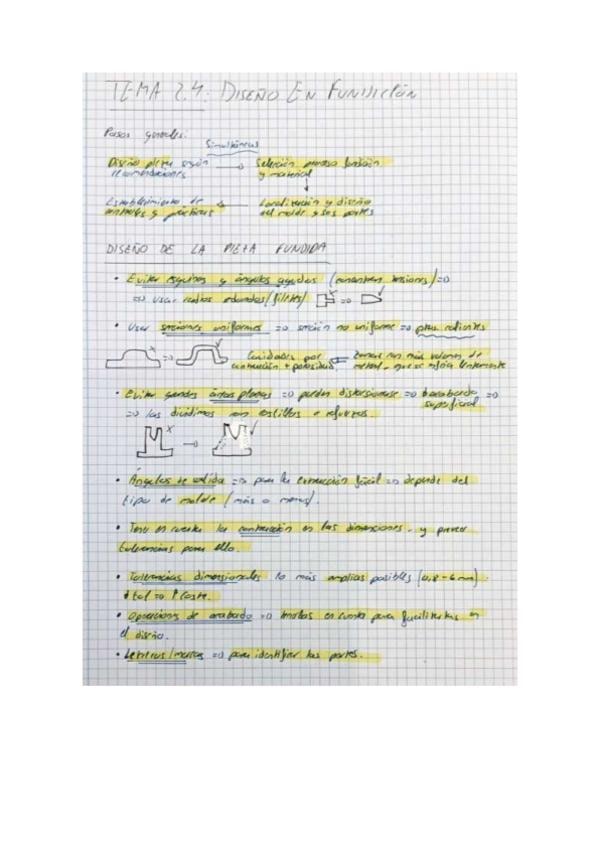 TEMA 2.4: DISEÑO EN FUNDICIÓN
Pasos generales:
Simultáneas
Diseño pieza según → Selección proceso fundición
recomendaciones y material
Establecimiento de ← Localización y diseño
controles y prácticas del molde y sus partes
DISEÑO DE LA PIEZA FUNDIDA
• Evitar esquinas y ángulos agudos (concentran tensiones) =>
=> usar radios redondos (filetes) x => ✓
• Usar secciones uniformes => sección no uniforme => ptos calientes
x => ✓ Cavidades por <= Zonas con más volumen de
contracción + porosidad metal, que se enfría lentamente
• Evitar grandes áreas planas => pueden distorsionarse => acabado =>
superficial
=> las dividimos con costillas o refuerzos.
x → ✓
• Ángulos de salida => para la extracción fácil => depende del
tipo de molde (más o menos).
• Tener en cuenta la contracción en las dimensiones, y prever
tolerancias para ello.
• Tolerancias dimensionales lo más amplias posibles (0,8-6 mm).
↓ tol => ↑ coste.
• Operaciones de acabado => tenerlas en cuenta para facilitarlas en
el diseño.
• Letreros/marcas => para identificar las partes.